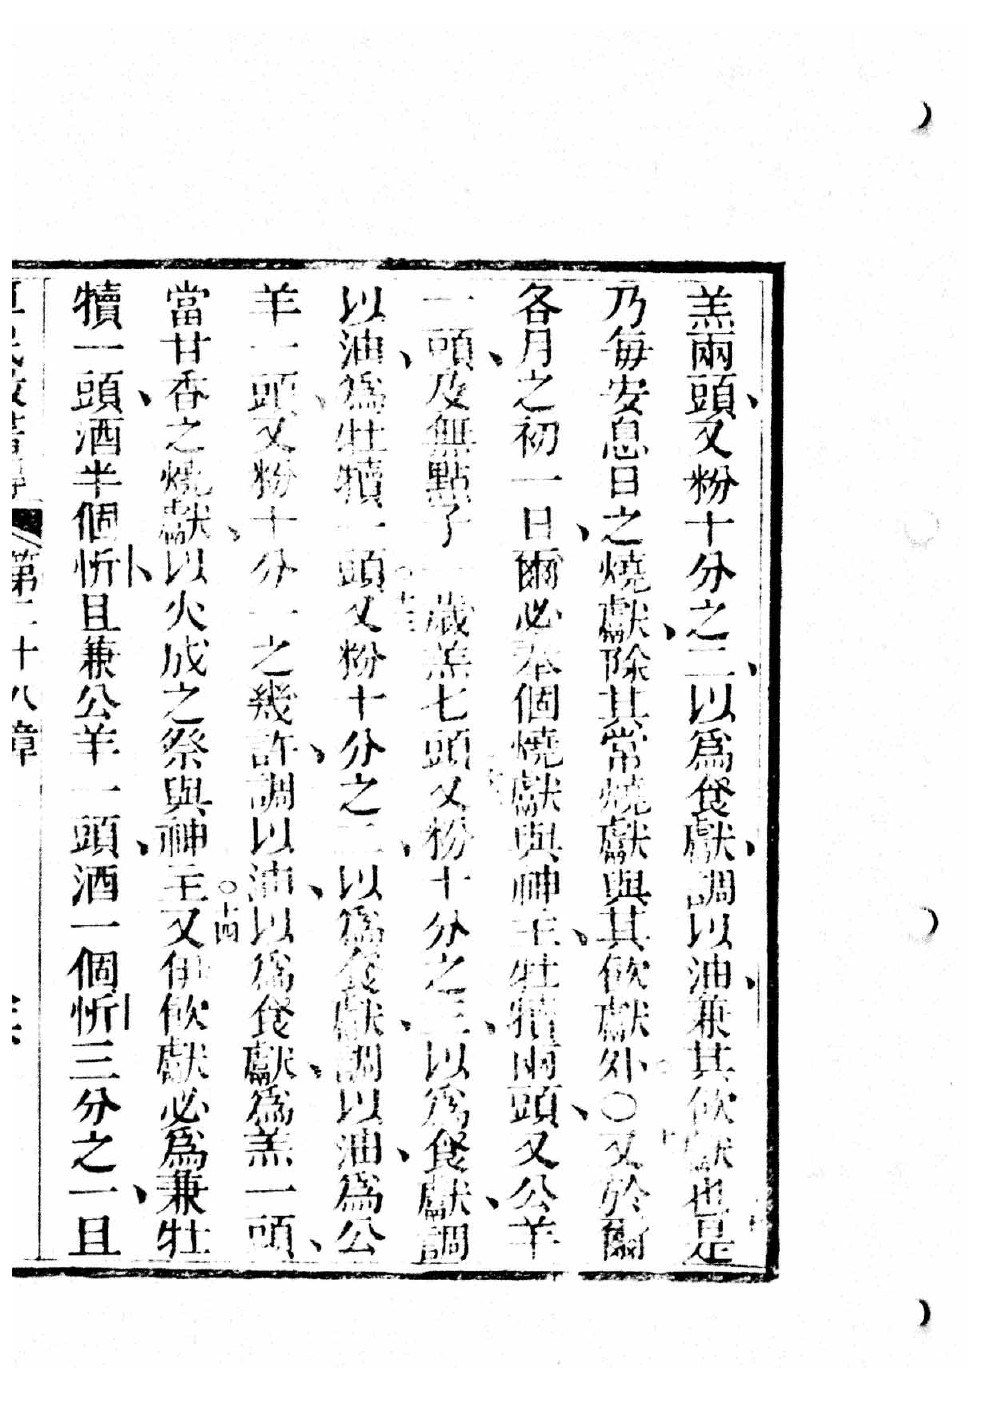 羔兩頭、又粉十分之二、以爲食獻、調以油、兼其飲獻也是
乃每安息日之燒獻、除其常燒獻與其飲獻外○又於爾
各月之初一日、爾必奉個燒獻與神主、牡犢兩頭、又公羊
一頭、及無點子一歲羔七頭、又粉十分之三、以爲食獻、調
以油、爲牡犢一頭、又粉十分之二、以爲食獻、調以油、爲公
羊一頭、又粉十分一之幾許、調以油、以爲食獻、爲羔一頭、
當甘香之燒獻、以火成之祭與神主○十四又伊飲獻必爲兼牡
犢一頭、酒半個忻、且兼公羊一頭、酒一個忻三分之一、且
第二十八章